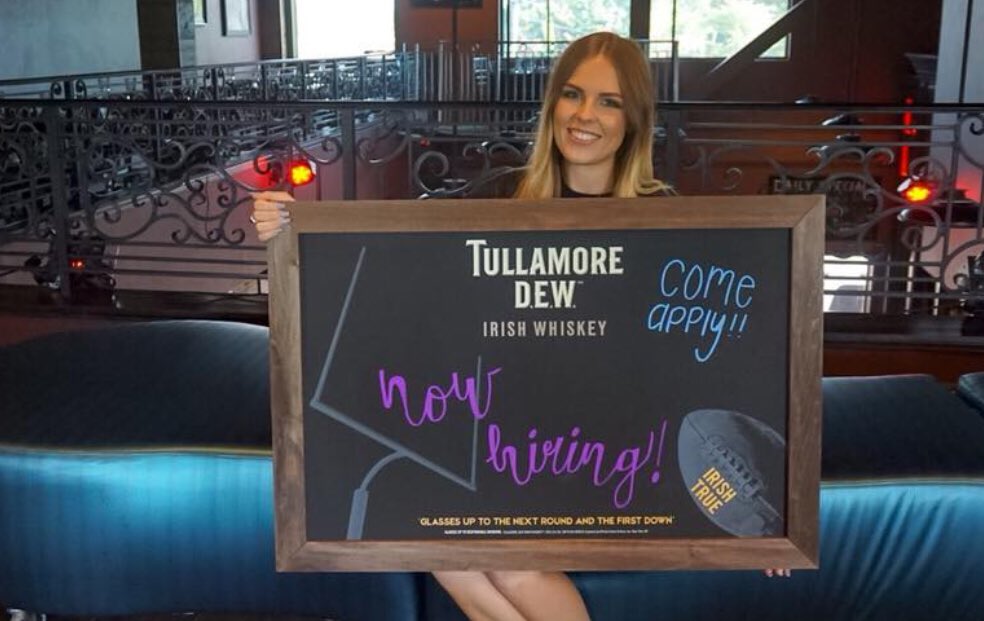 DAILY SPECIAL
TULLAMORE
D.E.W.™
IRISH WHISKEY
Come
apply!!
now
hiring!
IRISH
TRUE
"GLASSES UP TO THE NEXT ROUND AND THE FIRST DOWN"